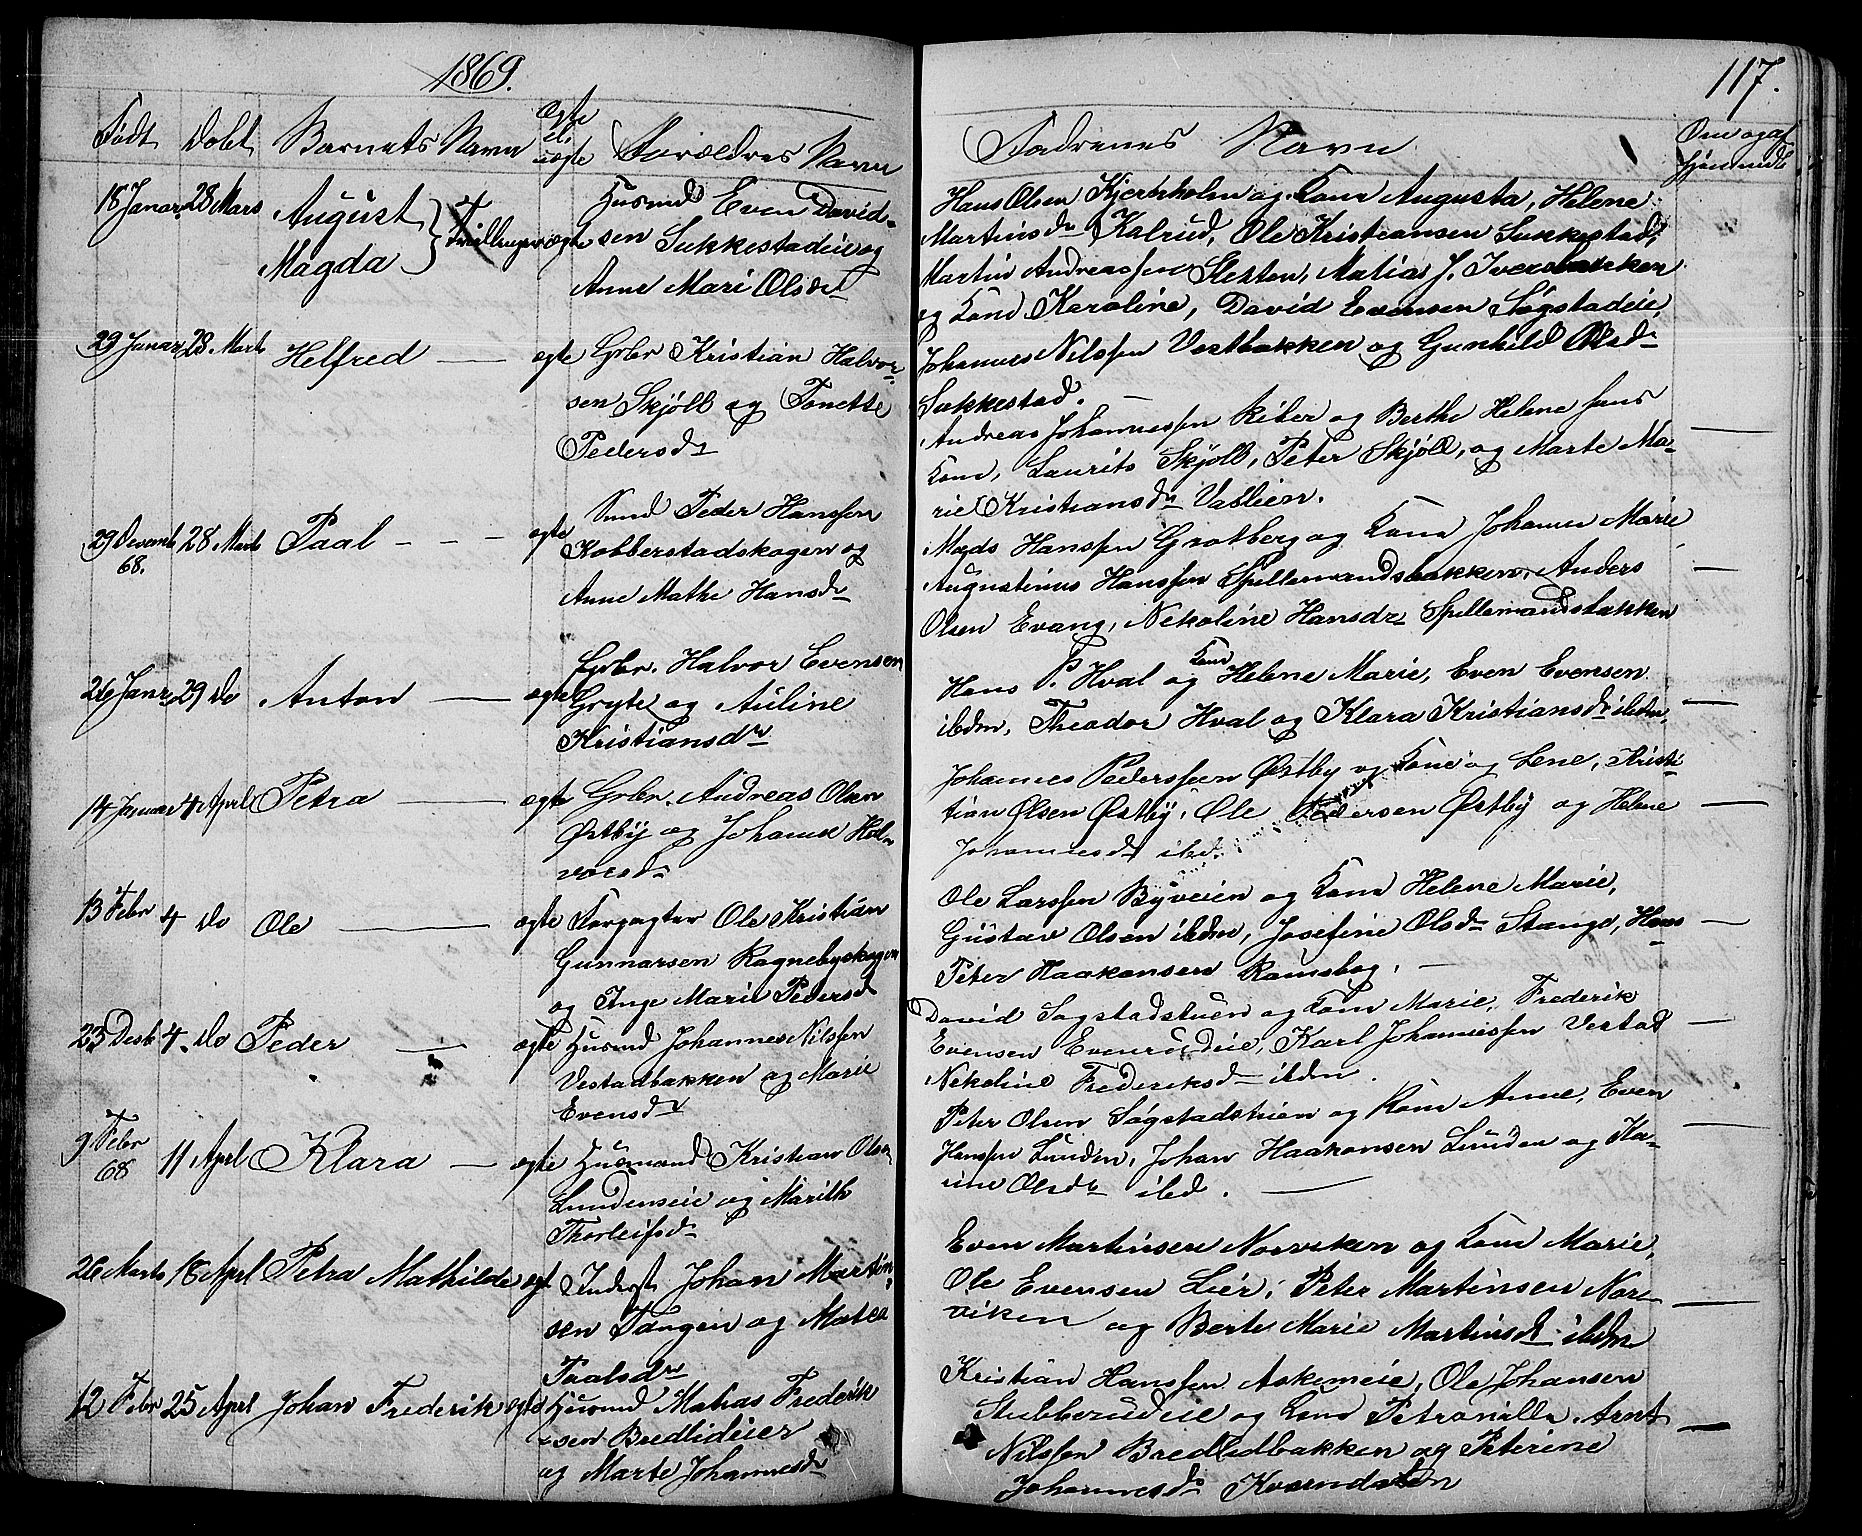 1869.
117.
Født Døbt Barnets Navn Ægte el. uægte Forældres Navn
Fadrenes Navn
18 Januar 28 Mars August Magda } Tvillinger ægte Husmd Even David-
sen Sukkestadeie og
Anne Mari Olsdr
Hans Olsen Kjerkholm og Kone Augusta, Helene
Martinsdr Kalrud, Ole Kristiansen Sukkestad,
Martin Andreassen Sletten, Matias J. Iversbakken
og Kone Karoline, David Evensen Søgstadeie,
Johannes Nilssen Vestbakken og Gunhild Olsdr
Sukkestad.
29 Januar 28 Marts Helfred — ægte Grbr Kristian Halvor-
sen Skjøll og Tonette
Pedersdr
Andreas Johannessen Kiker og Berthe Helene hans
Kone, Laurits Skjøll, Peter Skjøll, og Marte Ma-
rie Kristiansdr Vablien.
29 Decemb 68. 28 Marts Paal - - - ægte Smed Peder Hanssen
Kobberstadskogen og
Anne Mathe Hansdr
Mads Hanssen Grotberg og Kone Johanne Marie
Augustinus Hanssen Spillemandsbakken, Anders
Olsen Evang, Nekoline Hansdr Spillemandsbakken
26 Janr 29 Do Anton — ægte Grbr. Halvor Evensen
Gryte og Auline
Kristiansdr
Hans P. Hval og Kone Helene Marie, Even Evensen
ibdm, Theodor Hval og Klara Kristiansdr ibdm,
14 Januar 4 April Petra — ægte Grbr. Andreas Olsen
Østby og Johanne Hal-
vorsdr
Johannes Pederssen Østby og Kone og Lene, Kristi-
tian Olsen Østby, Ole Pedersen Østby og Helene
Johannesdr ibd.
13 Febr 4 Do Ole — ægte Forpagter Ole Kristian
Gunnarsen Ragnebyskogen
og Inge Marie Pedersd
Ole Larssen Byveien og Kone Helene Marie,
Gustav Olsen ibdm, Josefine Olsdr Stange, Hans
Peter Haakonsen Ramsbog.
23 Desb 4. Do Peder — ægte Husmd Johannes Nilssen
Vestadbakken og Marie
Evensdr
David Søgstadstuen og Kone Marie, Frederik
Evensen Evenrudeie, Karl Johannessen Vestad
Nekoline Frederiksdr ibdm.
9 Febr 68 11 April Klara — ægte Husmand Kristian Olsen
Lundenseie og Marith
Thorleifsdr
Peter Olsen Søgstadstuen og Kone Anne, Even
Hanssen Lunden, Johan Haakonsen Lunden og Ka-
rine Olsdr ibd.
26 Marts 18 April Petra Mathilde ægt Inderst Johan Martin-
sen Tangen og Matea
Paalsdr
Even Martinsen Norviken og Kone Marie,
Ole Evensen Lier, Peter Martinsen Nor-
viken og Berte Marie Martinsdr ibdm
12 Febr 25 April Johan Frederik ægte Husmd Matias Frederik
sen Bredlideier
og Marte Johannesdr
Kristian Hanssen Askemeie, Ole Johansen
Stubberudeie og Kone Petronille, Arnt
Nilssen Bredlidbakken og Peterine
Johannesdr Kverndalen